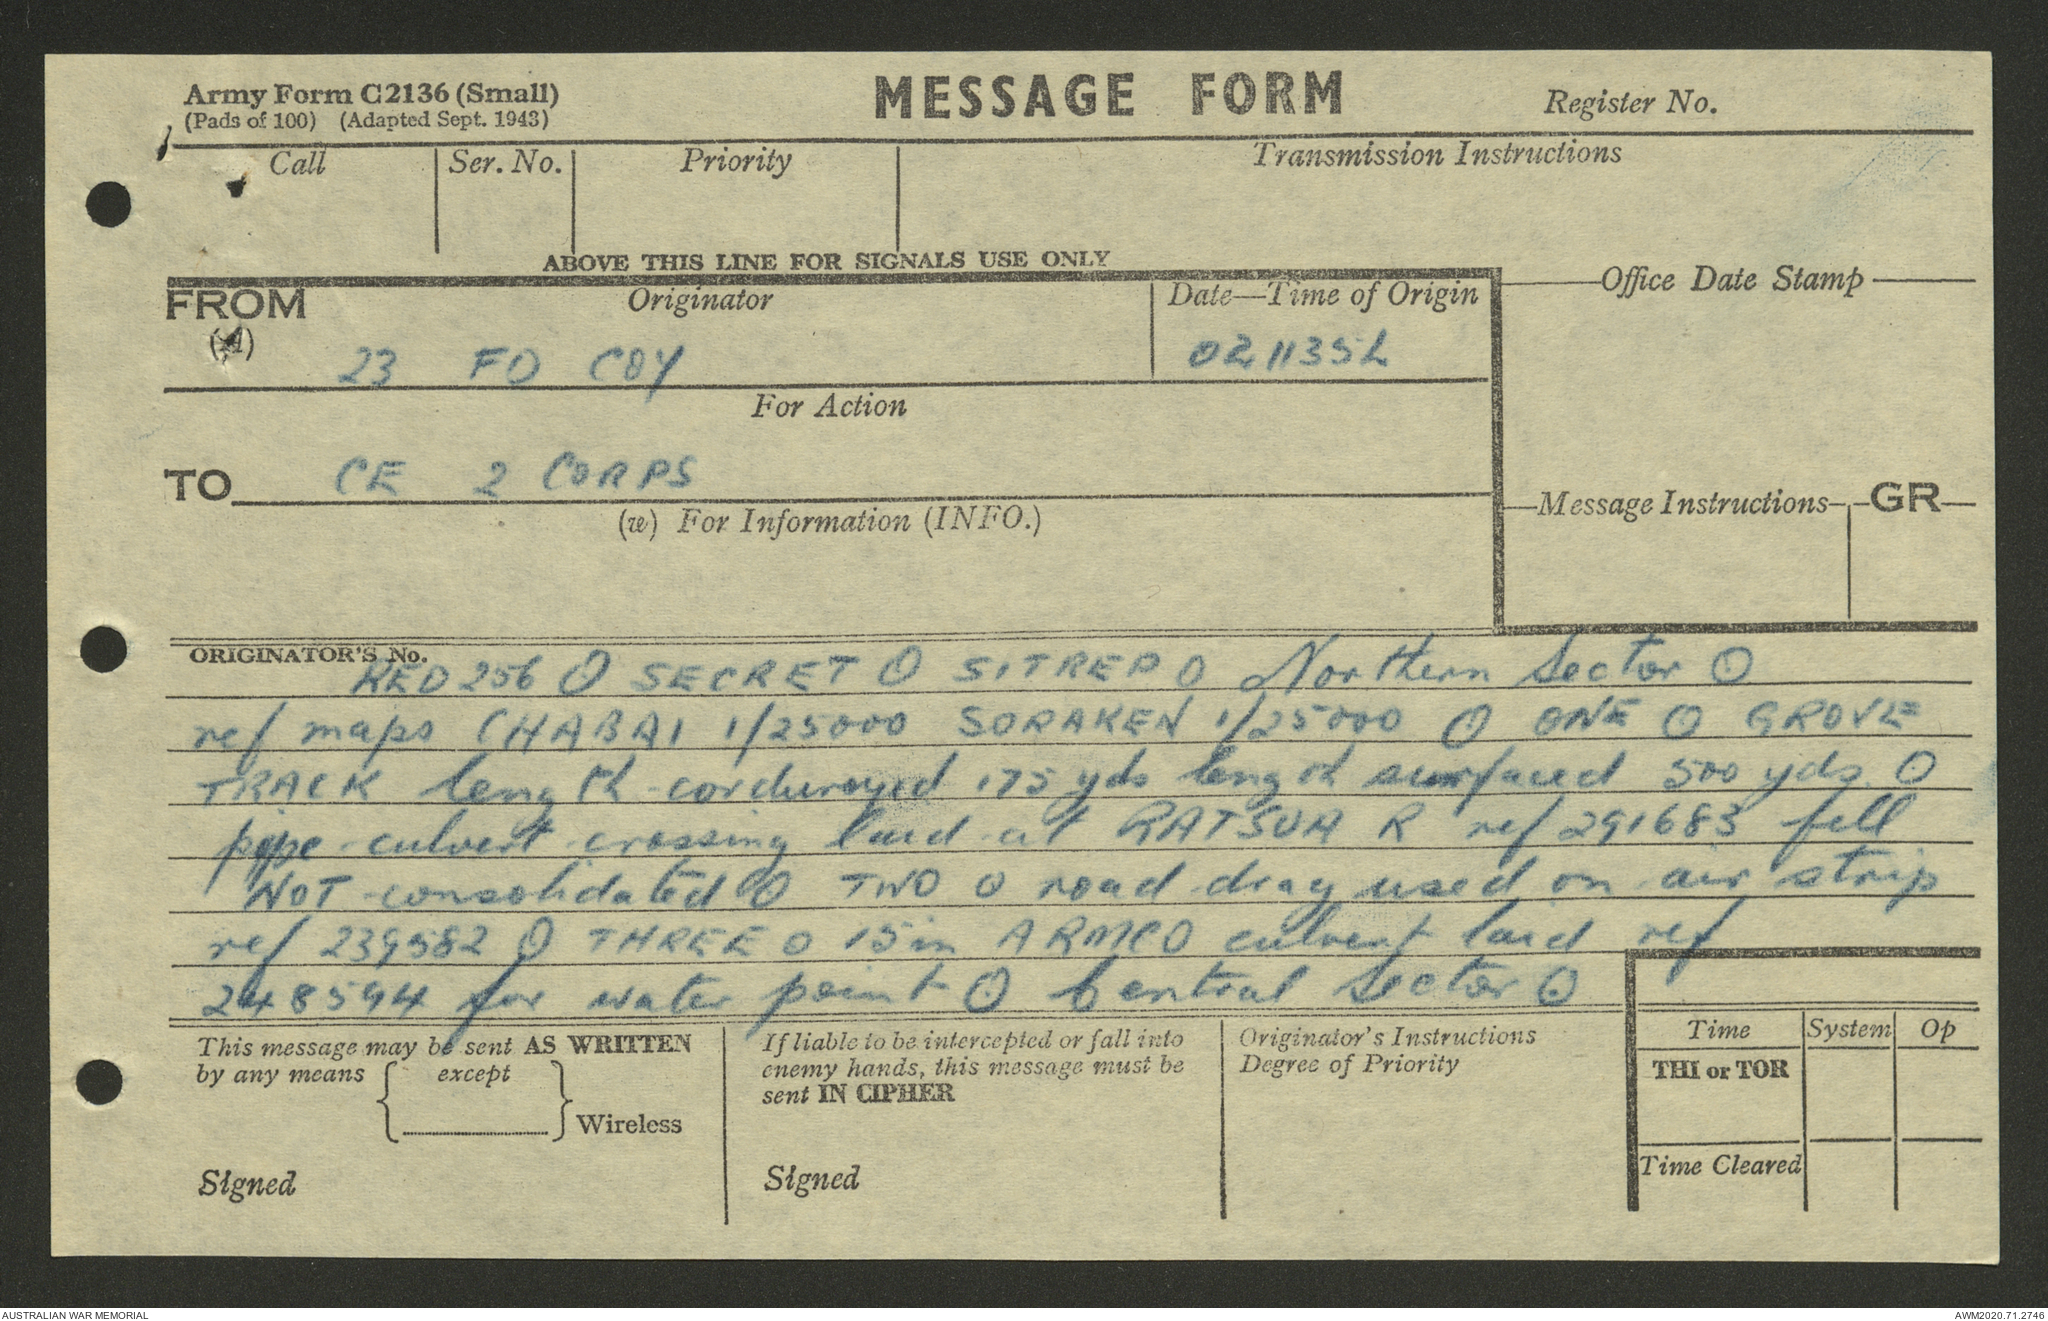 Army Form C2136 (Small)
(Pads of 100) (Adapted Sept. 1943)
MESSAGE FORM
Register No.
Call
Ser. No.
Priority
Transmission Instructions
ABOVE THIS LINE FOR SIGNALS USE ONLY
FROM
(A)
Originator
Date—Time of Origin
Office Date Stamp
23 FD COY
021135L
For Action
TO
CE 2 CORPS
(w) For Information (INFO.)
Message Instructions
GR
ORIGINATOR'S No.
RED 256 O SECRET O SITREP O Northern Sector O
ref maps CHABAI 1/25000 SORAKEN 1/25000 O ONE O GROVE
TRACK length corduroyed 175 yds length surfaced 500 yds O
pipe culvert crossing laid at RATSUA R ref 291683 fill
NOT consolidated O TWO O road drag used on air strip
ref 239582 O THREE O 15 in ARMCO culvert laid ref
248594 for water point O Central Sector O
This message may be sent AS WRITTEN
by any means { except } Wireless
Signed
If liable to be intercepted or fall into
enemy hands, this message must be
sent IN CIPHER
Signed
Originator's Instructions
Degree of Priority
Time
System
Op
THI or TOR
Time Cleared
AUSTRALIAN WAR MEMORIAL
AWM2020.71.2746